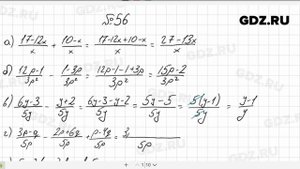 GDZ.RU
№56
а) (17-12x)/x + (10-x)/x = (17-12x+10-x)/x = (27-13x)/x
б) (12p-1)/3p² - (1-3p)/3p² = (12p-1-1+3p)/3p² = (15p-2)/3p²
в) (6y-3)/5y - (y+2)/5y = (6y-3-y-2)/5y = (5y-5)/5y = 5(y-1)/5y = (y-1)/y
г) (3p-q)/5p - (2p+6q)/5p + (p-4q)/5p = 3/5p
GDZ.RU